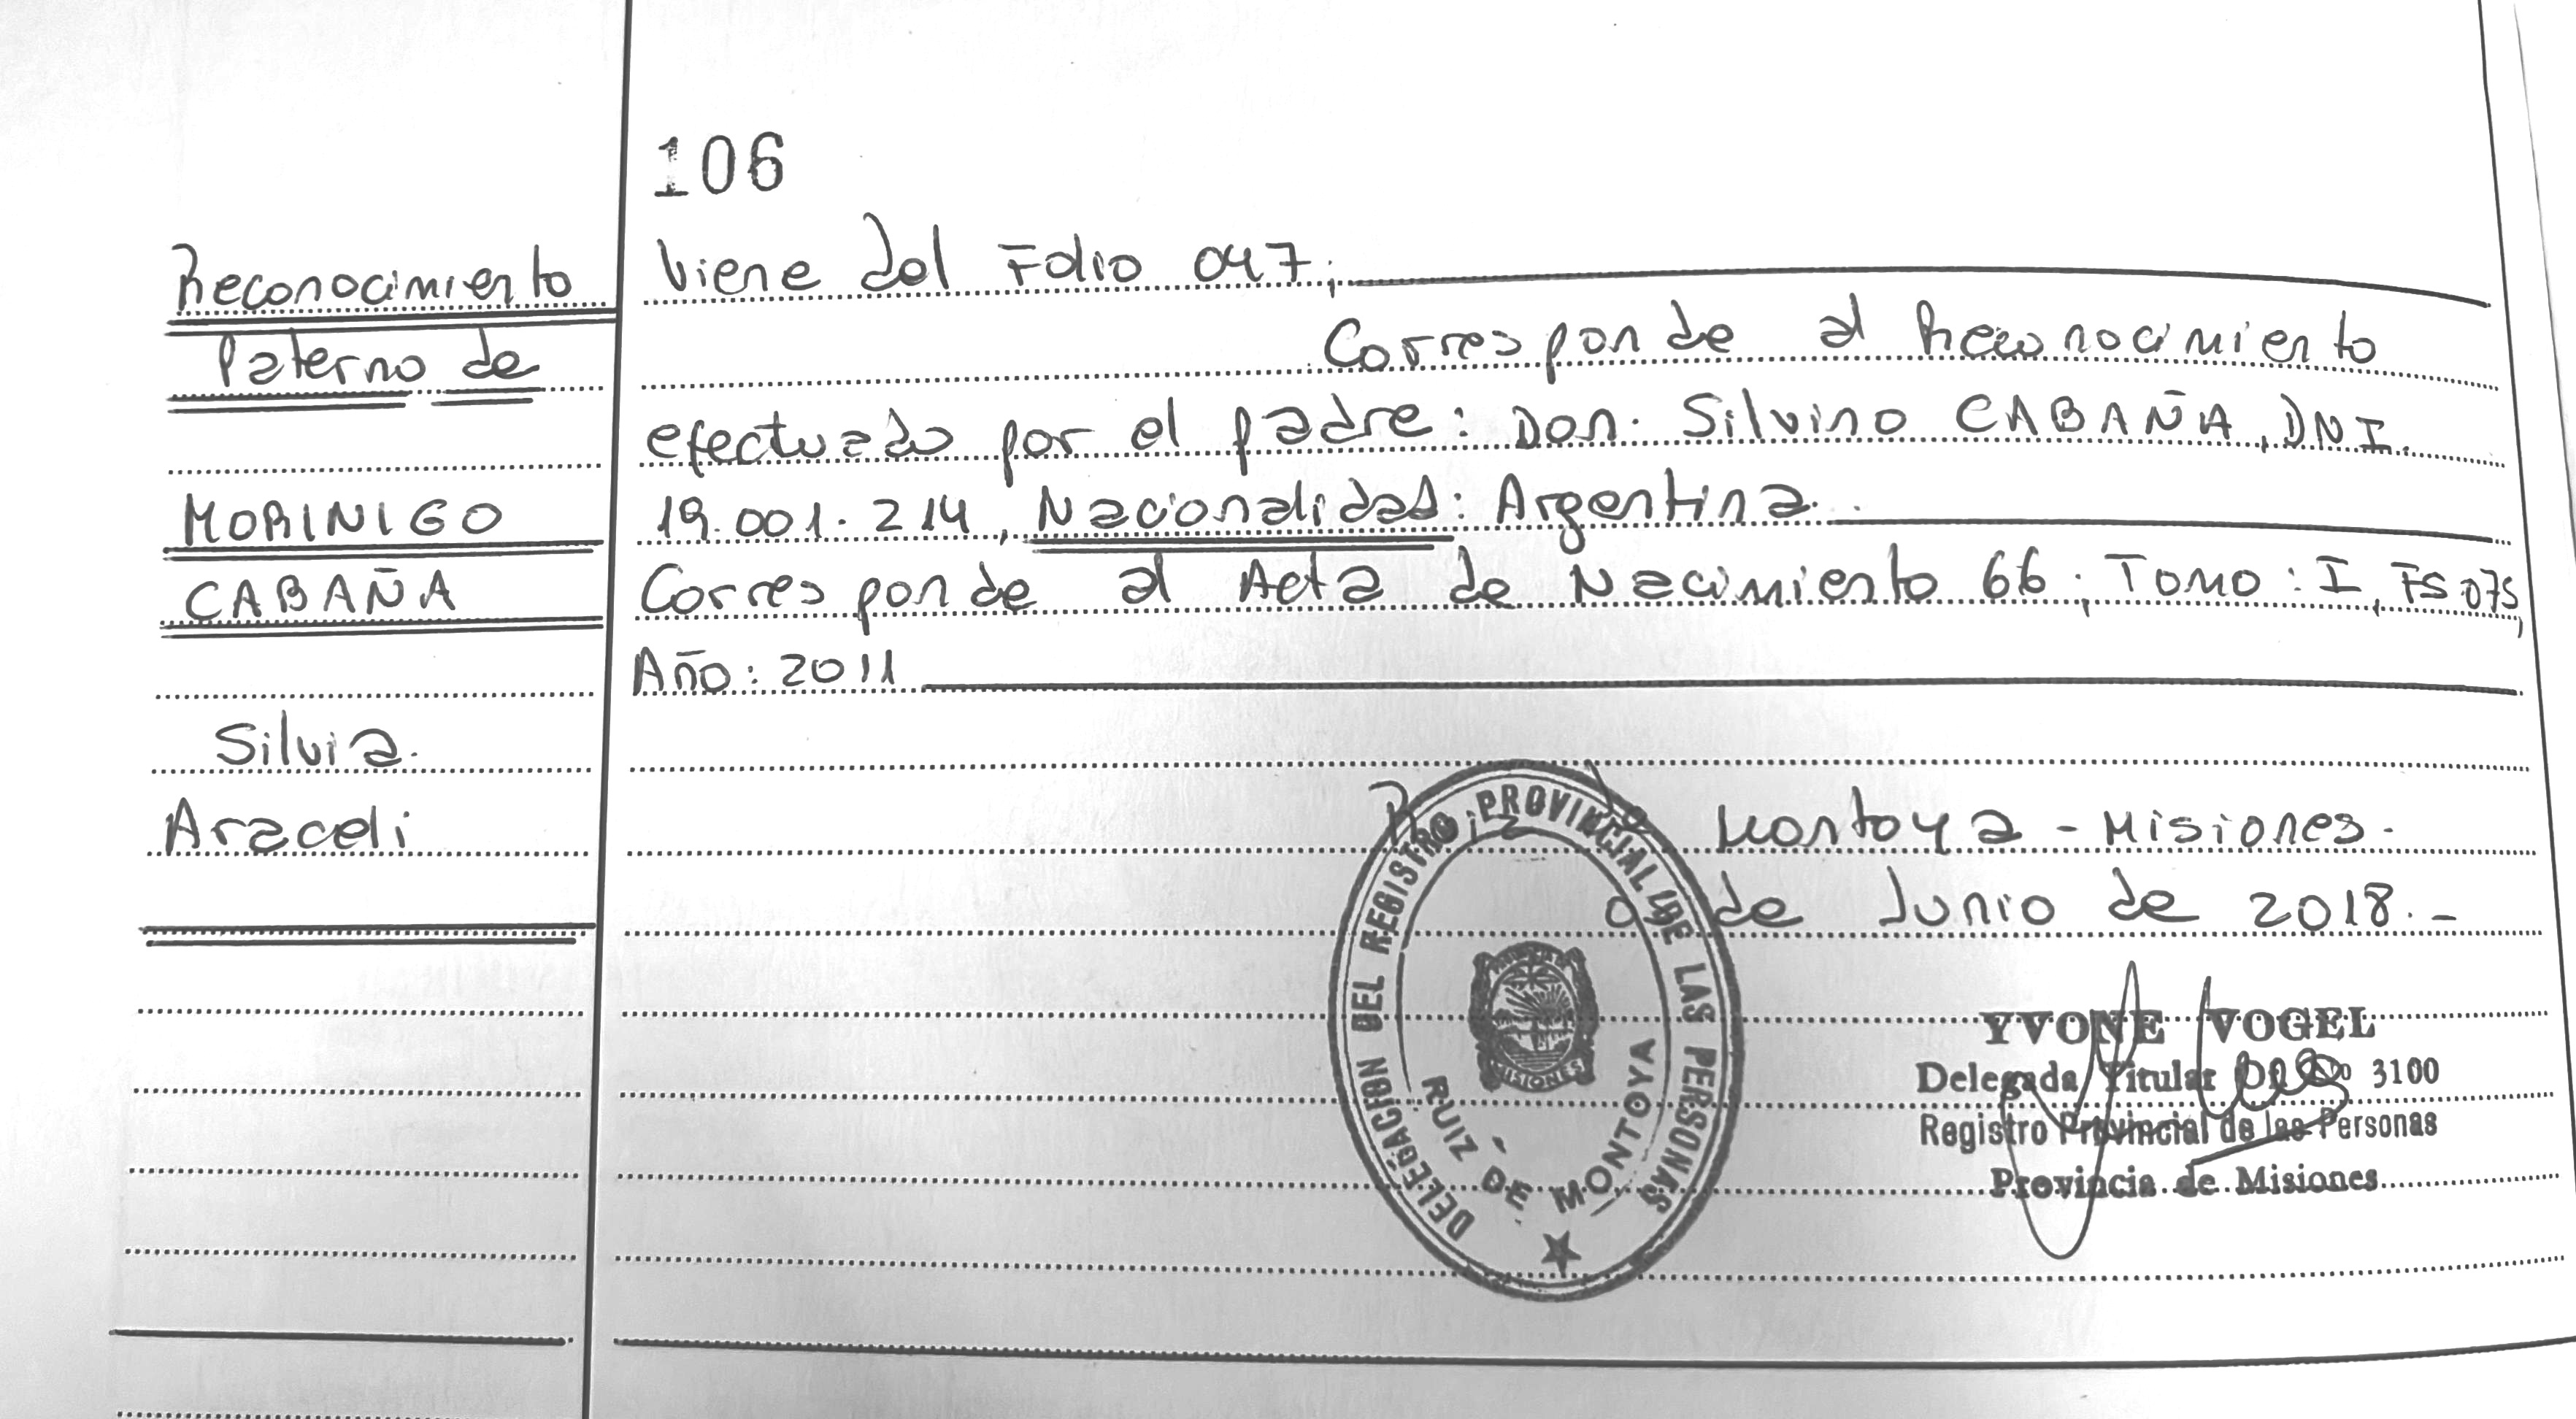 106
Reconocimiento
Paterno de
MORINIGO
CABAÑA
Silvia
Araceli
Viene del Folio 047;
Corresponde al Reconocimiento
efectuado por el padre: Don. Silvino CABAÑA, DNI.
19.001.214, Nacionalidad: Argentina.
Corresponde al Acta de Nacimiento 66; Tomo: I, FS 075,
Año: 2011
Ruiz de Montoya - Misiones.
de Junio de 2018.-
DELEGACION DEL REGISTRO PROVINCIAL DE LAS PERSONAS
MISIONES
RUIZ DE MONTOYA
YVONE VOGEL
Delegada Titular 3100
Registro Provincial de las Personas
Provincia de Misiones